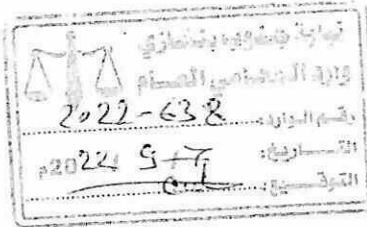 نيابة جنوب بنغازي
وارد المحامي العام
رقم الوارد: 2022-638
التاريخ: 2022م
التوقيع: